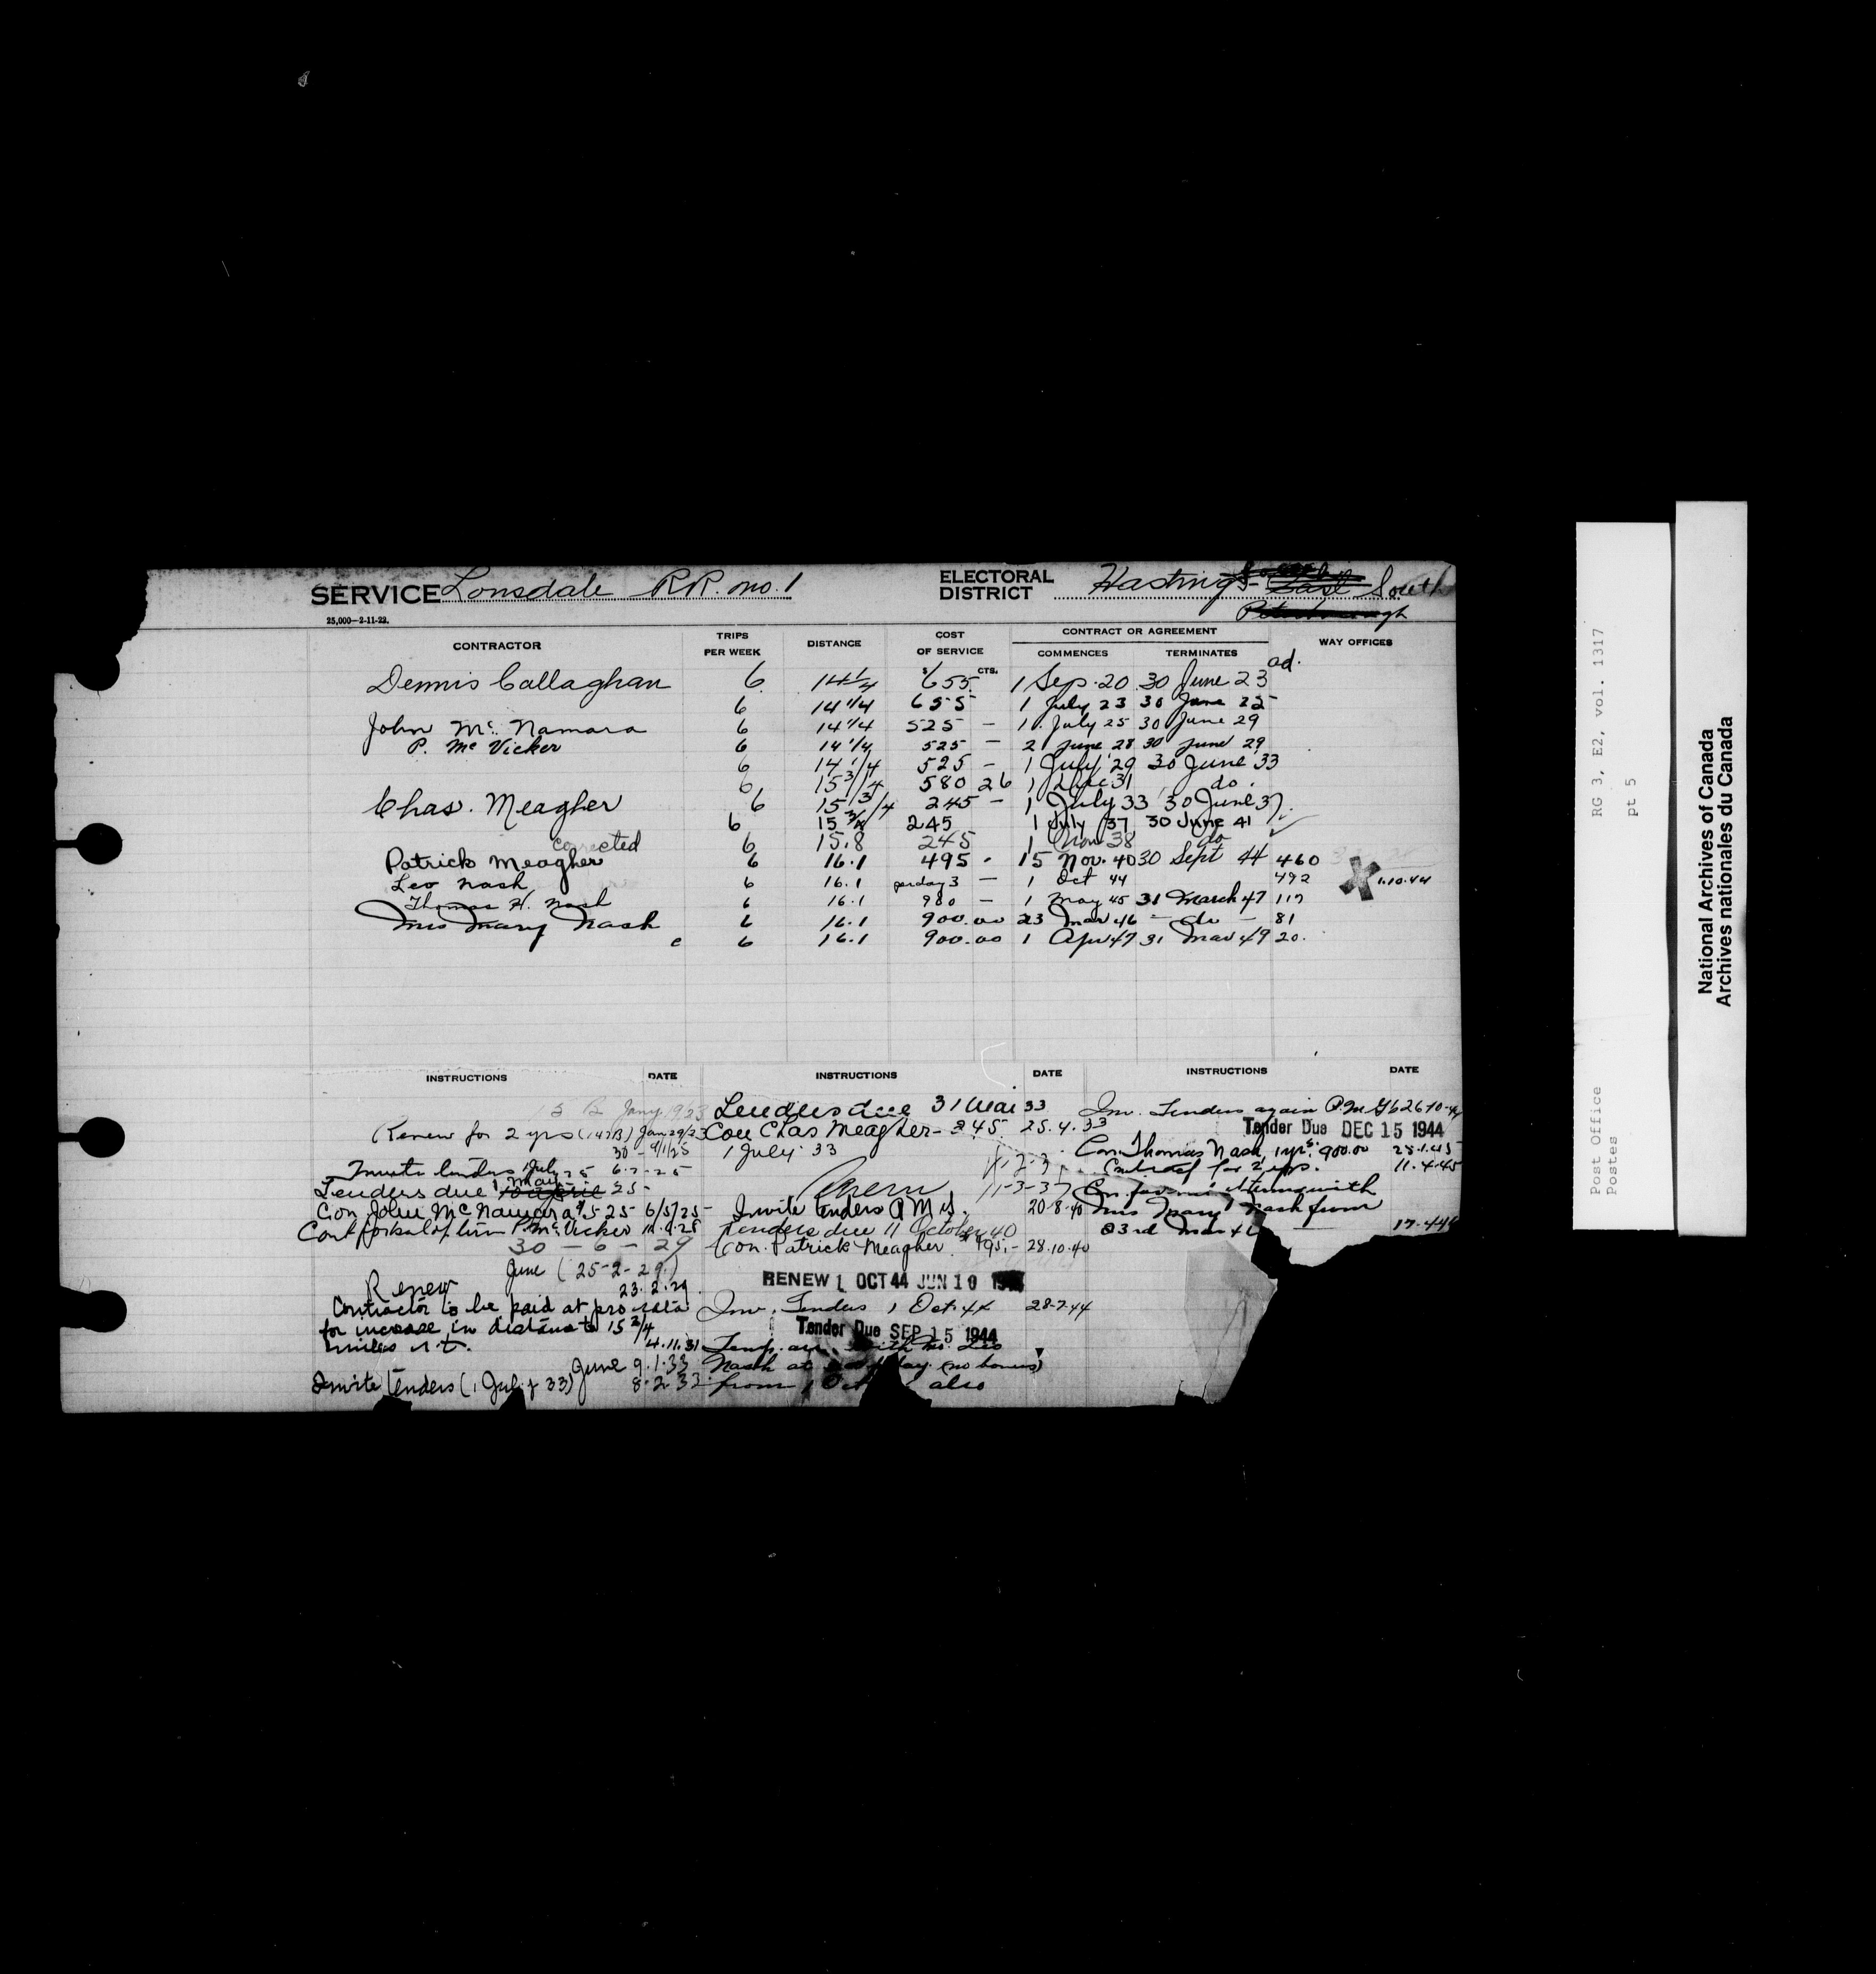 SERVICE Lonsdale RR. no. 1
ELECTORAL DISTRICT Hastings East South
Peterborough
25,000—2-11-22.
CONTRACTOR TRIPS PER WEEK DISTANCE COST OF SERVICE CONTRACT OR AGREEMENT COMMENCES TERMINATES WAY OFFICES
$ CTS.
Dennis Callaghan 6 14 1/4 655 1 Sep. 20 30 June 23 ad.
6 14 1/4 655 1 July 23 30 June 25
John Mc Namara 6 14 1/4 525 — 1 July 25 30 June 29
P. Mc Vicker 6 14 1/4 525 — 2 June 28 30 June 29
6 14 1/4 525 — 1 July 29 30 June 33
6 15 3/4 580 26 1 Dec 31 do.
Chas. Meagher 6 15 3/4 245 — 1 July 33 30 June 37.
6 15 3/4 245 1 July 37 30 June 41
corrected 6 15.8 245 1 Nov 38 do
Patrick Meagher 6 16.1 495 - 15 Nov. 40 30 Sept 44 460
Leo Nash 6 16.1 perday 3 — 1 Oct 44 492 1.10.44
Thomas H. Nash 6 16.1 980 — 1 May 45 31 March 47 117
Mrs Mary Nash 6 16.1 900.00 23 Mar 46 — do — 81
c 6 16.1 900.00 1 Apr 47 31 Mar 49 20.
INSTRUCTIONS DATE INSTRUCTIONS DATE INSTRUCTIONS DATE
Jany. 1923
Renew for 2 yrs (147B) Jan 29/23
30 - 9/1/25
Invite tenders 1 July 25 6-2-25
Tenders due 1 May 25-
Con John McNamara $525- 6/5/25-
Cont for bal of term P. Mc Vicker
30 — 6 — 29
June (25-2-29.)
Renew 23.2.29.
Contractor to be paid at pro rata
for increase in distance to 15 3/4
miles r.t. 4.11.31
June 9.1.33
Invite tenders (1 July 33) 8.2.33
Tenders due 31 Mar 33
Con Chas Meagher - 245 25.4.33
1 July 33
Renew 11-3-37
Invite tenders P M S. 20-8-40
Tenders due 11 October 40
Con. Patrick Meagher $495.- 28.10.40
RENEW 1 OCT 44 JUN 10
Inv. Tenders 1 Oct. 44 28-7-44
Tender Due SEP 15 1944
Temp. arr. with Mr. Leo
Nash at day (no bonus)
from 1 Oct also
Inv. Tenders again
Tender Due DEC 15 1944
Con. Thomas Nash, 1 yr. 900.00 25.1.45
Contract for 2 yrs. 11.4.45
with
Mrs Mary Nash from
23rd Mar 46 17.4.46
RG 3, E2, vol. 1317
pt 5
Post Office
Postes
National Archives of Canada
Archives nationales du Canada